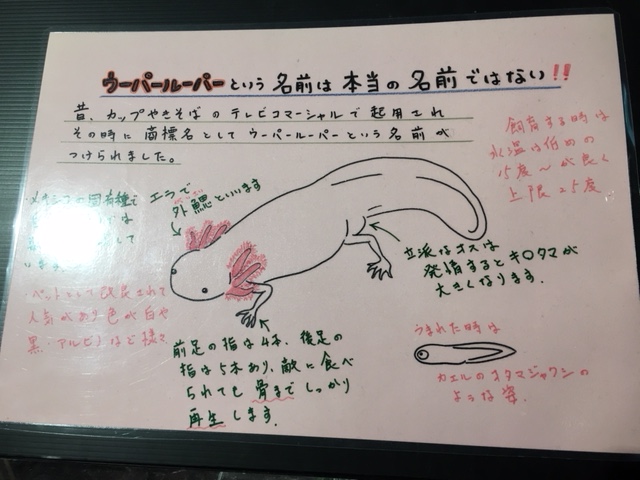 ウーパールーパーという名前は本当の名前ではない!!
昔、カップやきそばのテレビコマーシャルで起用され
その時に商標名としてウーパールーパーという名前が
つけられました。
飼育する時は
水温は低めの
15度〜が良く
上限25度
メキシコの固有種で
エラで
外鰓といいます
立派なオスは
発情するとキ〇タマが
大きくなります.
・ペットとして改良されて
人気があり色が白や
黒・アルビノなど様々
前足の指は4本、後足の
指は5本あり、敵に食べ
られても骨までしっかり
再生します.
うまれた時は
カエルのオタマジャクシの
ような姿.